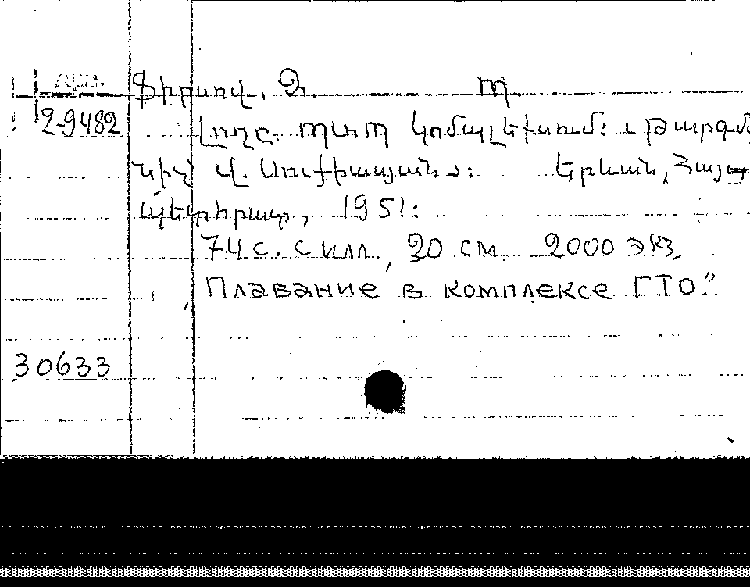 Ֆիրսով, Զ.
2-9482 Լողը ՊԱՊ կոմպլեքսում: Թարգմ
նիչ Վ. Առւքիասյան: Երևան, Հայ
պետհրատ, 1951:
74 с. с илл, 20 см 2000 экз.
Плавание в комплексе ГТО."
30633